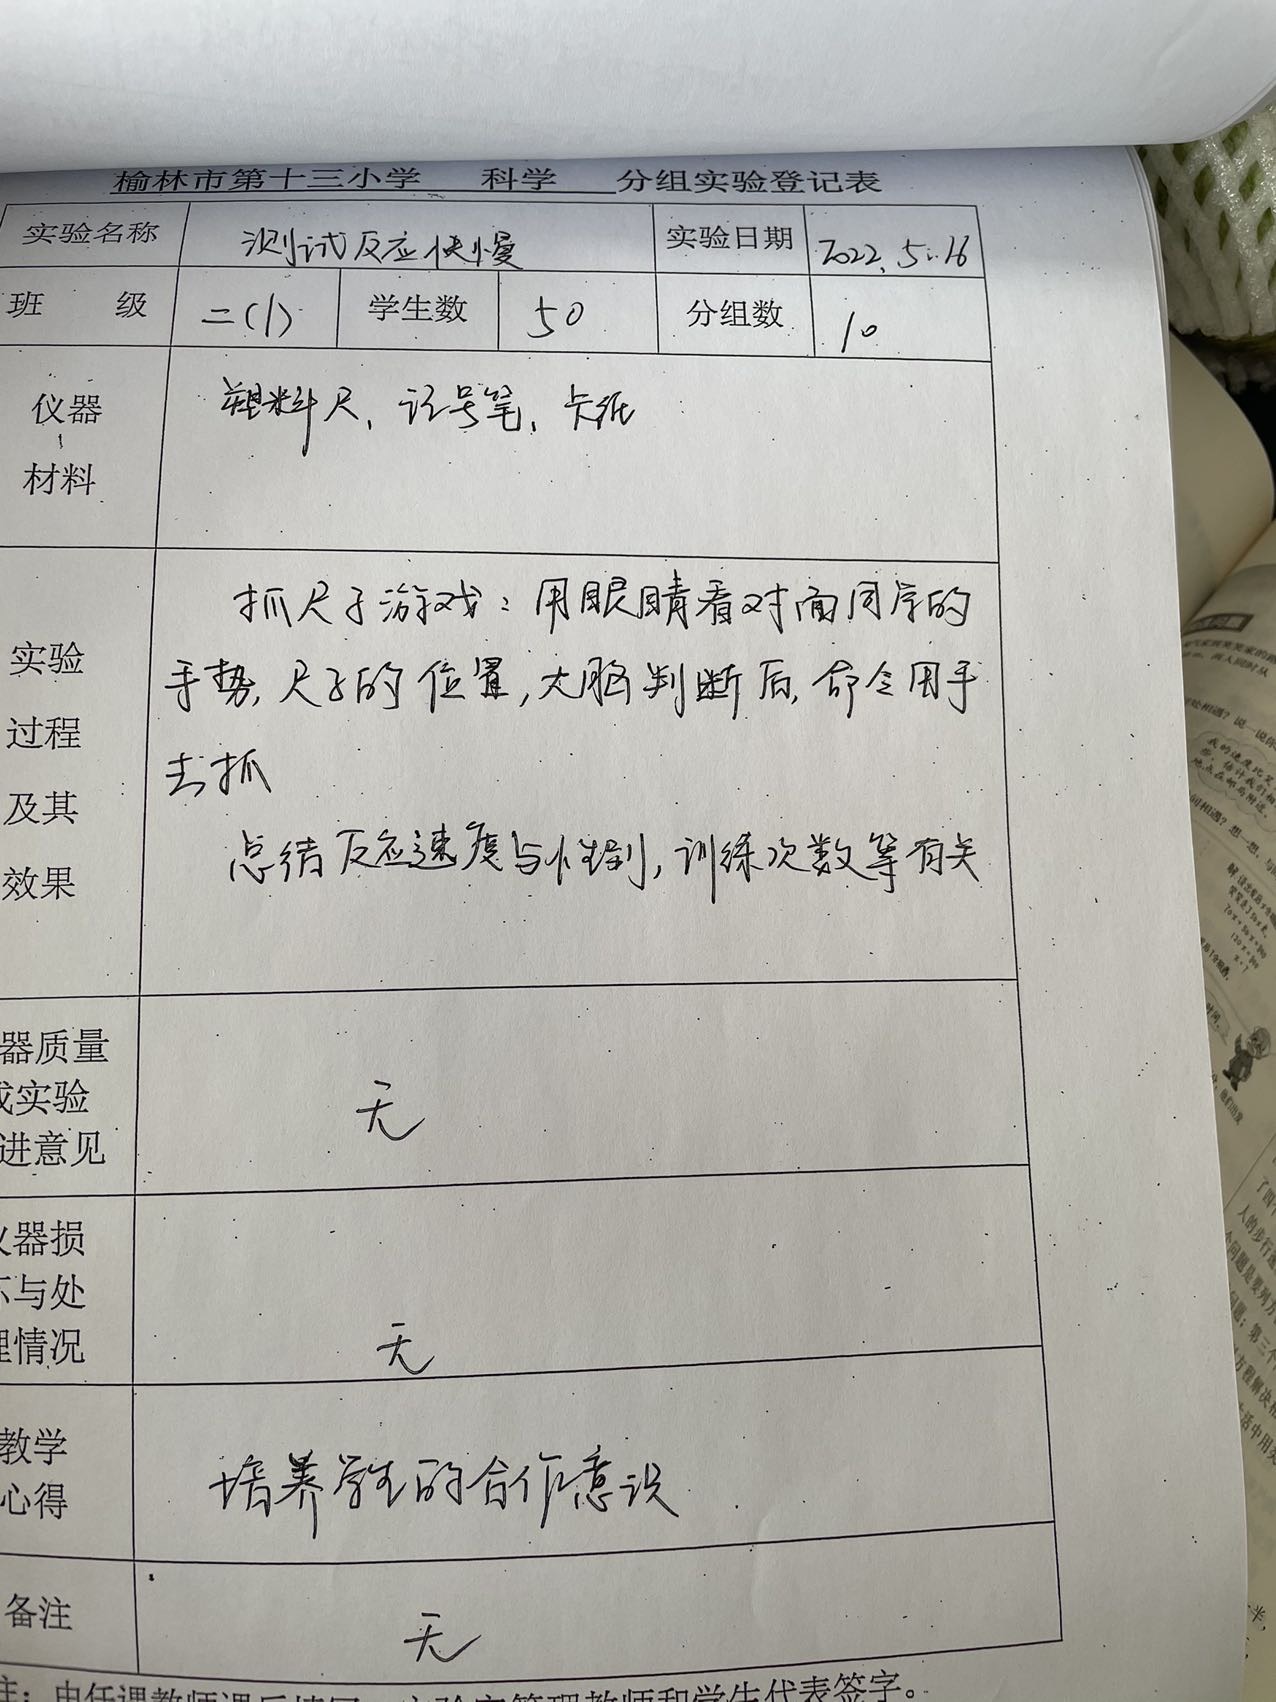 榆林市第十三小学 科学 分组实验登记表
实验名称 测试反应快慢 实验日期 2022.5.16
班 级 二(1) 学生数 50 分组数 10
仪器 塑料尺、记号笔、卡纸
材料
抓尺子游戏:用眼睛看对面同学的
实验 手势,尺子的位置,大脑判断后,命令用手
过程 去抓
及其 总结反应速度与性别,训练次数等有关
效果
器质量
或实验 无
进意见
仪器损
坏与处
理情况 无
教学 培养学生的合作意识
心得
备注 无
注:由任课教师课后填写,实验室管理教师和学生代表签字。